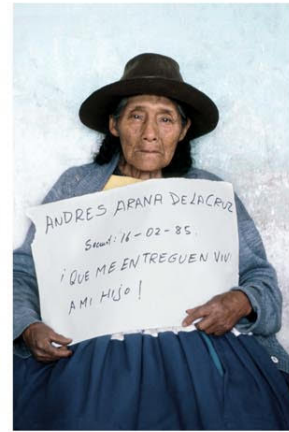 ANDRES ARANA DE LA CRUZ
Secuest: 16-02-85.
¡QUE ME ENTREGUEN VIV
A MI HIJO!